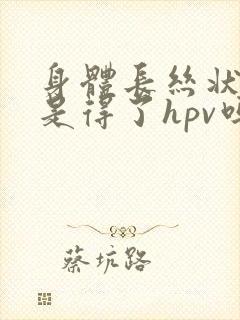 身體長絲狀
是得了hpv嗎
蔡坑路